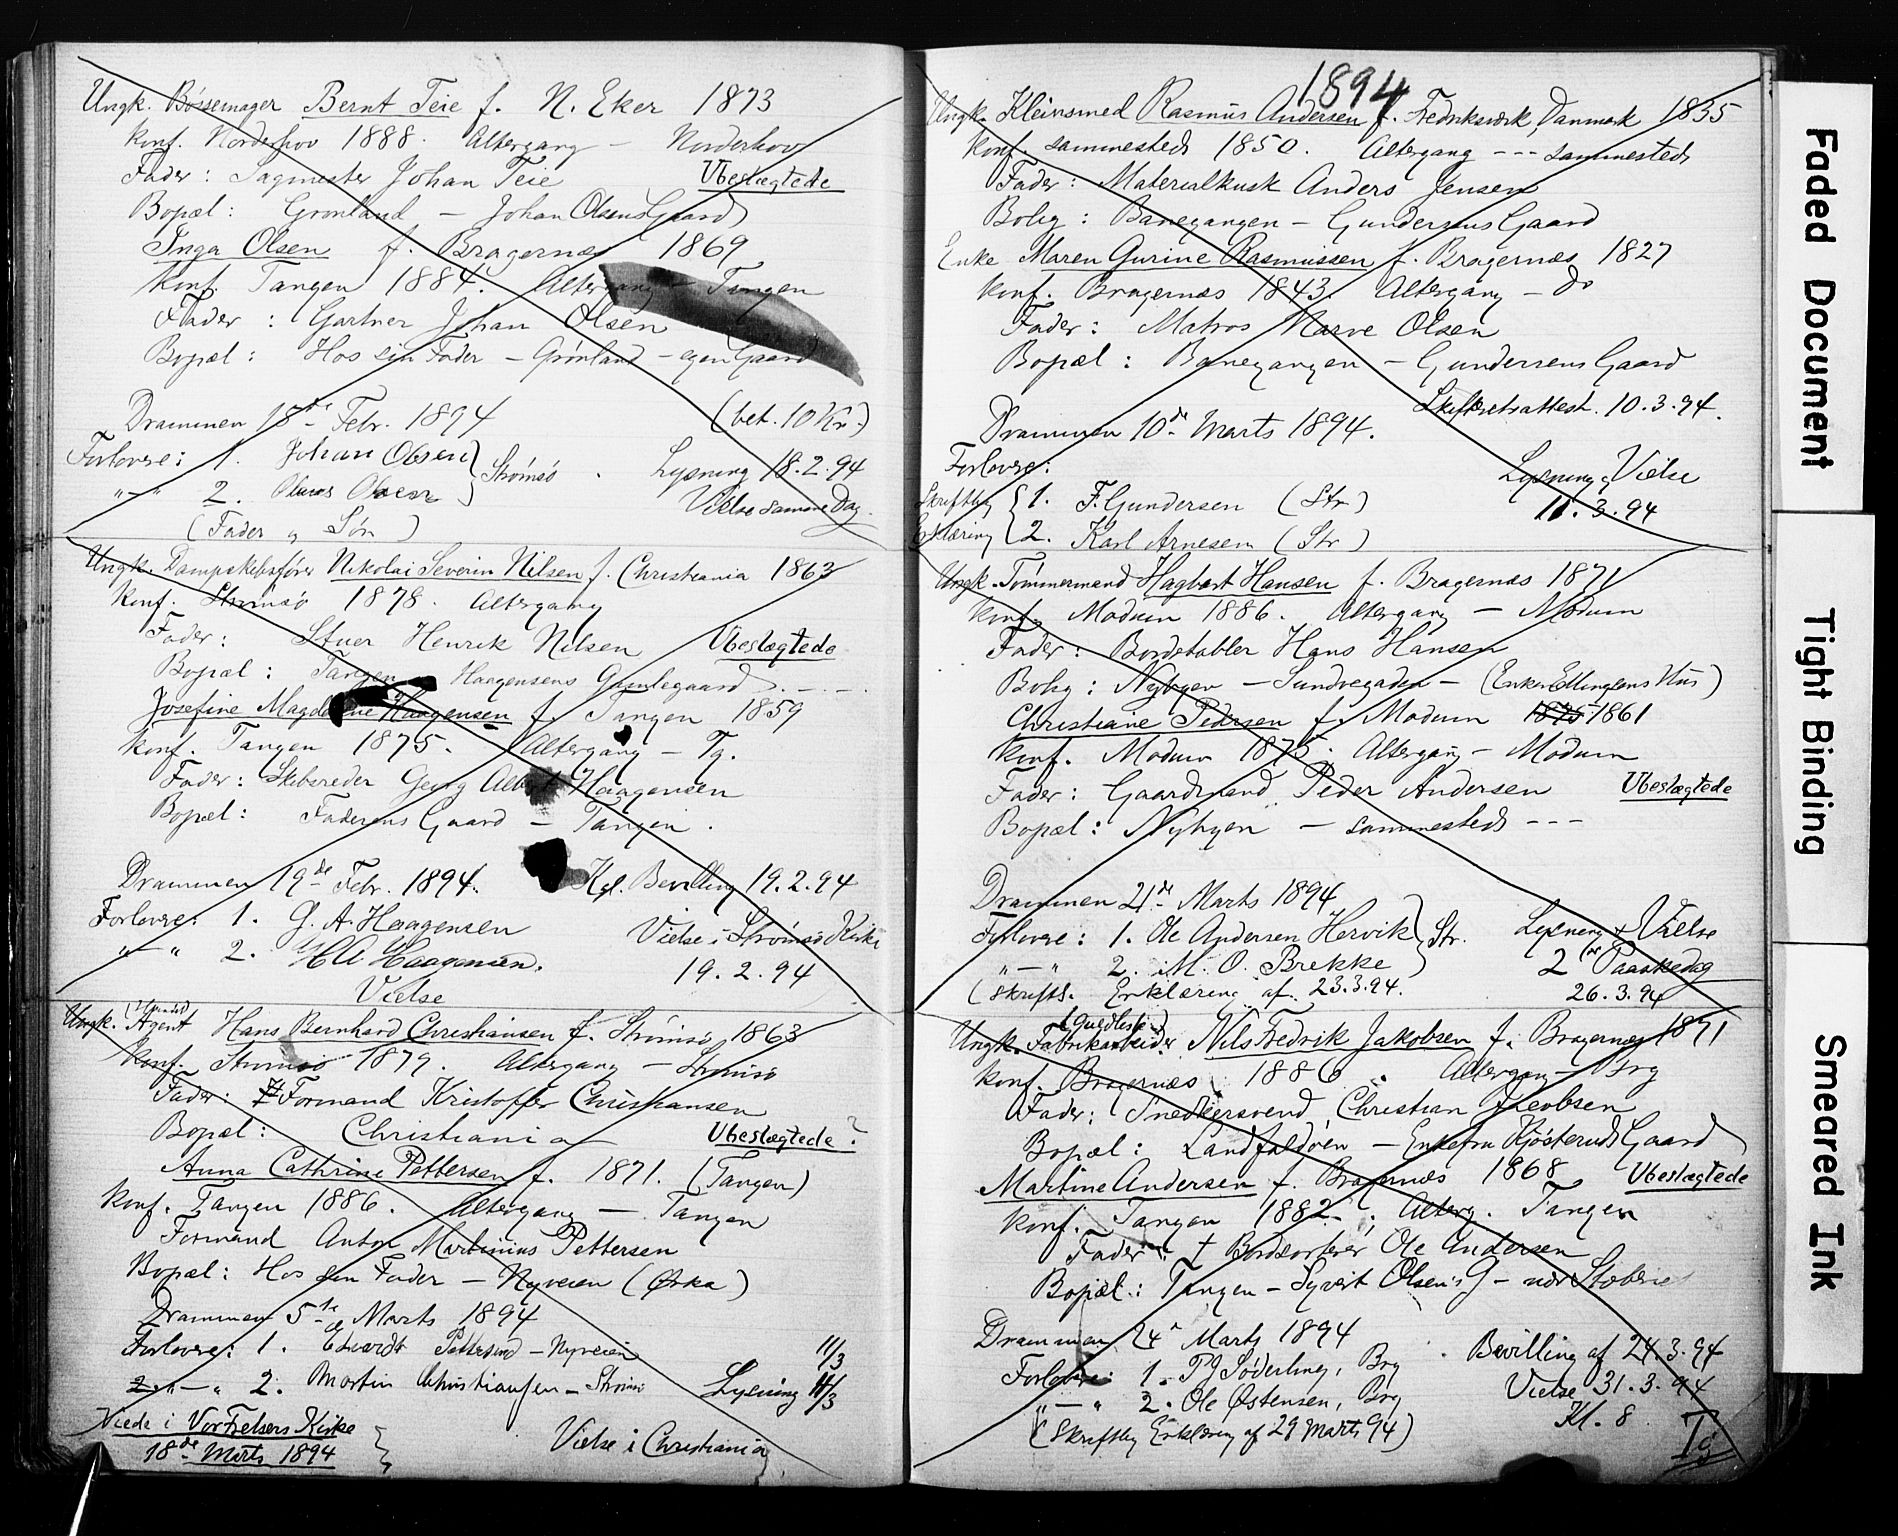 Ungk. Bøssemager Bernt Teie f. N. Eker 1873
Konf. Norderhov 1888. Altergang — Norderhov
Fader: Sagmester Johan Teie Ubeslægtede
Bopæl: Grønland — Johan Olsens Gaard
Inga Olsen f. Bragernæs 1869
Konf. Tangen 1884. Altergang — Tangen
Fader: Gartner Johan Olsen
Bopæl: Hos sin Fader — Grønland — egen Gaard
Drammen Febr. 1894 (bet. 10 Kr.)
Forlovere: 1. Johan Olsen } Strømsø. Lysning 18.2.94
"—" 2. Olsen Vielse samme Dag.
(Fader og Søn)
Ungk. Dampskibsfører Nikolai Severin Nilsen f. Christiania 1863
Konf. Strømsø 1878. Altergang
Fader: Stuer Henrik Nilsen Ubeslægtede
Bopæl: Tangen Haagensens Gamlegaard
Josefine Magdalene Haagensen f. Tangen 1859
Konf. Tangen 1875. Altergang — Tg.
Fader: Skibsreder Georg Albert Haagensen
Bopæl: Faderens Gaard — Tangen.
Drammen 19de Febr. 1894. Kgl. Bevilling 19.2.94
Forlovere: 1. G. A. Haagensen Vielse i Strømsø Kirke
"—" 2. H A Haagensen. 19.2.94
Vielse
Ungk. Agent Hans Bernhard Christiansen f. Strømsø 1863
Konf. Strømsø 1879. Altergang — Strømsø
Fader: Formand Kristoffer Christiansen
Bopæl: Christiania Ubeslægtede?
Anna Cathrine Pettersen f. 1871. (Tangen)
Konf. Tangen 1886. Altergang — Tangen
Formand Anton Martinius Pettersen
Bopæl: Hos sin Fader — Nyveien (Ørka)
Drammen 5te Marts 1894
Forlovere: 1. Edvardt Pettersen — Nyveien 11/3
"—" 2. Martin Christiansen — Strømsø Lysning 11/3
Viede i Vor Frelsers Kirke
18de Marts 1894 } Vielse i Christiania
1894
Ungk. Kleinsmed Rasmus Andersen f. Fredriksværk, Danmark 1835
Konf. sammesteds 1850. Altergang --- sammesteds
Fader: Materialkusk Anders Jensen
Bolig: Banegangen — Gundersens Gaard
Enke Maren Gurine Rasmussen f. Bragernæs 1827
Konf. Bragernæs 1843. Altergang — do
Fader: Matros Narve Olsen
Bopæl: Banegangen — Gundersens Gaard
Skifteretsattest. 10.3.94.
Drammen 10de Marts 1894.
Forlovere: Lysning, Vielse
Skriftlig { 1. F. Gundersen (Str) 11.3.94
Erklæring { 2. Karl Arnesen (Str)
Ungk. Tømmermand Hagbart Hansen f. Bragernæs 1871
Konf. Modum 1886. Altergang — Modum
Fader: Bordstabler Hans Hansen
Bolig: Nybyen — Sundvegaden — (Enke Ellingsens Hus)
Christiane Pedersen f. Modum 1875 1861
Konf. Modum 1875. Altergang — Modum
Fader: Gaardmand Peder Andersen Ubeslægtede
Bopæl: Nybyen — sammesteds ---
Drammen 21de Marts 1894
Forlovere: 1. Ole Andersen Hervik } Str. Lysning & Vielse
"—" 2. M. O. Brekke 2den Paaskedag
(Skriftl. Erklæring af. 23.3.94. 26.3.94
Ungk. Fabrikarbeider Nils Fredrik Jakobsen f. Bragernæs 1871
Konf. Bragernæs 1886. Altergang — Brg
Fader: Snedkersvend Christian Jacobsen
Bopæl: Landfaldøen — Enkefru Kjøsteruds Gaard
Martine Andersen f. Bragernæs 1868 Ubeslægtede
Konf. Tangen 1882. Alterg. Tangen
Fader: † Bordsorterer Ole Andersen
Bopæl: Tangen — Syvert Olsens G — nær Støberiet
Drammen 24de Marts 1894
Forlovere: 1. P J Söderling, Brg. Bevilling af 24.3.94
"—" 2. Ole Østensen, Brg Vielse 31.3.94
(Skriftlig Erklæring af 29 Marts 94) Kl. 8
Tg
Faded Document
Tight Binding
Smeared Ink